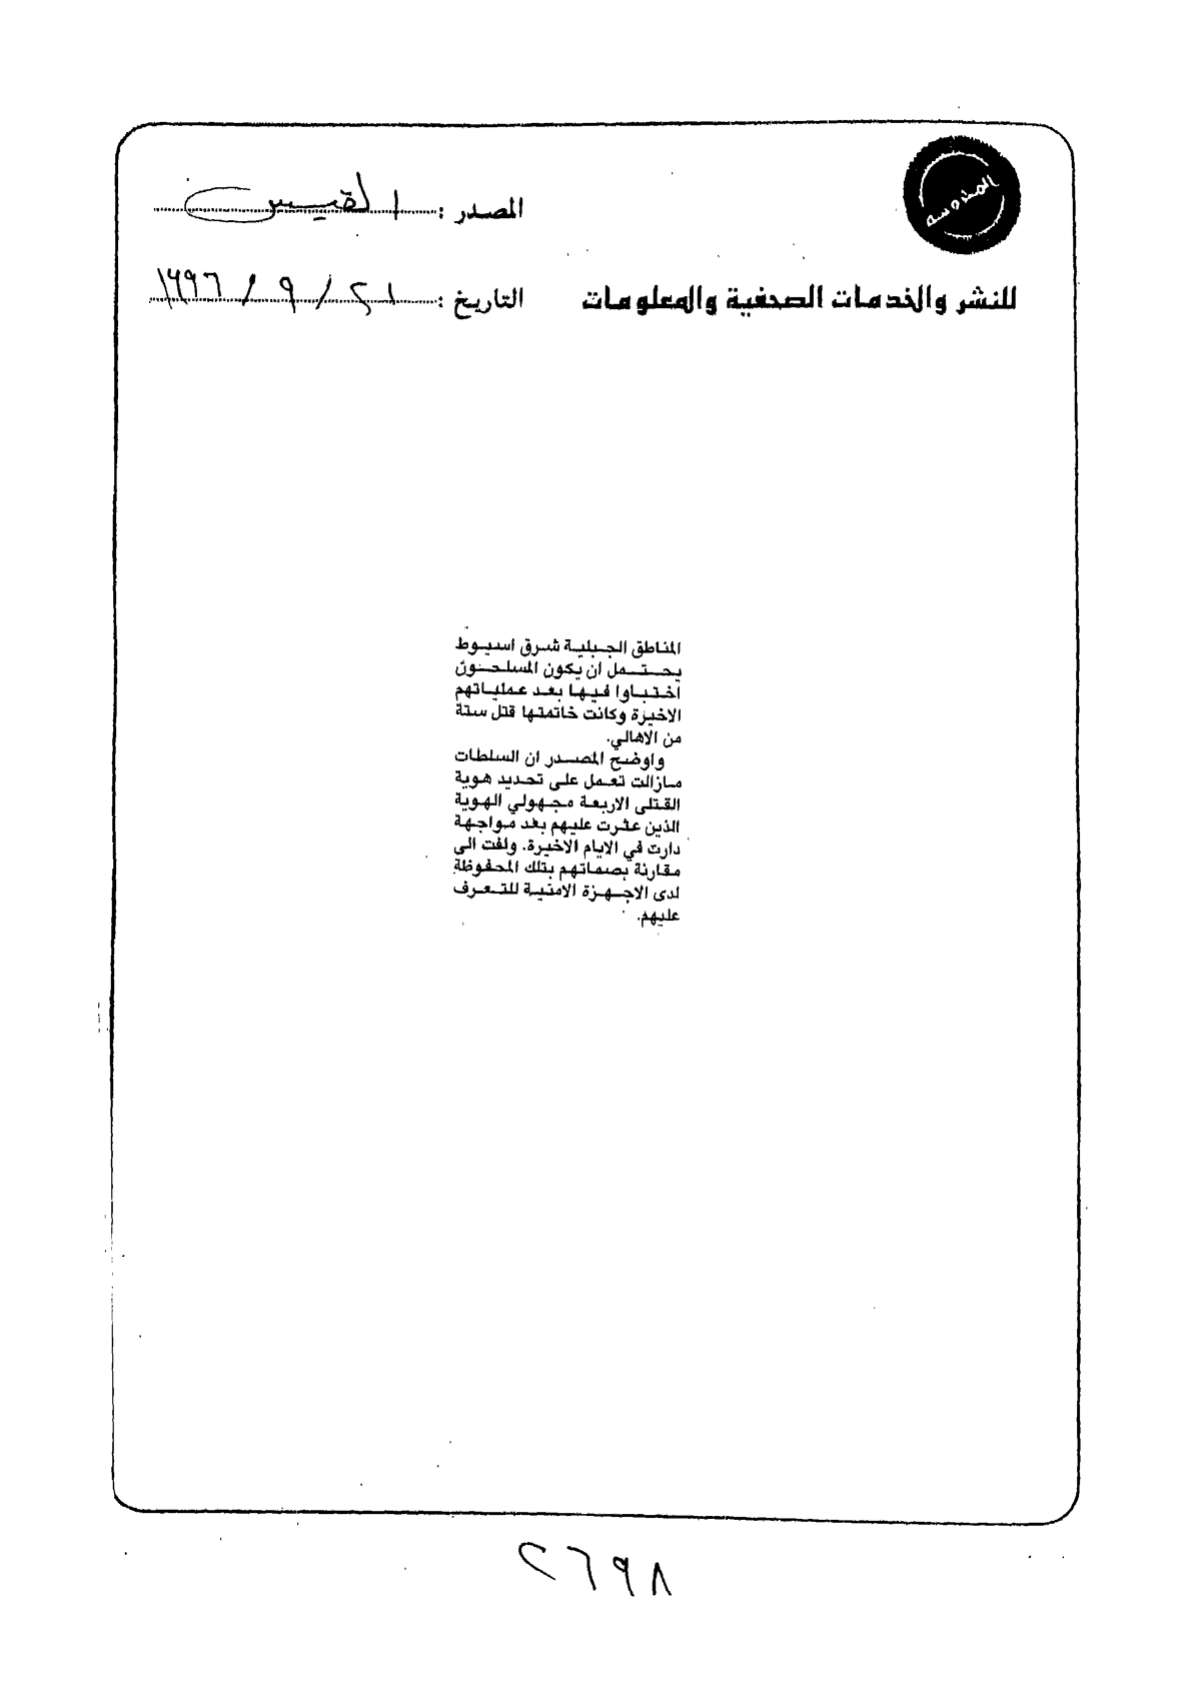 المحروسه
المصدر : القبس
للنشر والخدمات الصحفية والمعلومات
التاريخ : ٢١ / ٩ / ١٩٩٦
المناطق الجبلية شرق اسيوط
يحتمل ان يكون المسلحون
اختباوا فيها بعد عملياتهم
الاخيرة وكانت خاتمتها قتل ستة
من الاهالي.
واوضح المصدر ان السلطات
مازالت تعمل على تحديد هوية
القتلى الاربعة مجهولي الهوية
الذين عثرت عليهم بعد مواجهة
دارت في الايام الاخيرة. ولفت الى
مقارنة بصماتهم بتلك المحفوظة
لدى الاجهزة الامنية للتعرف
عليهم.
٢٦٩٨